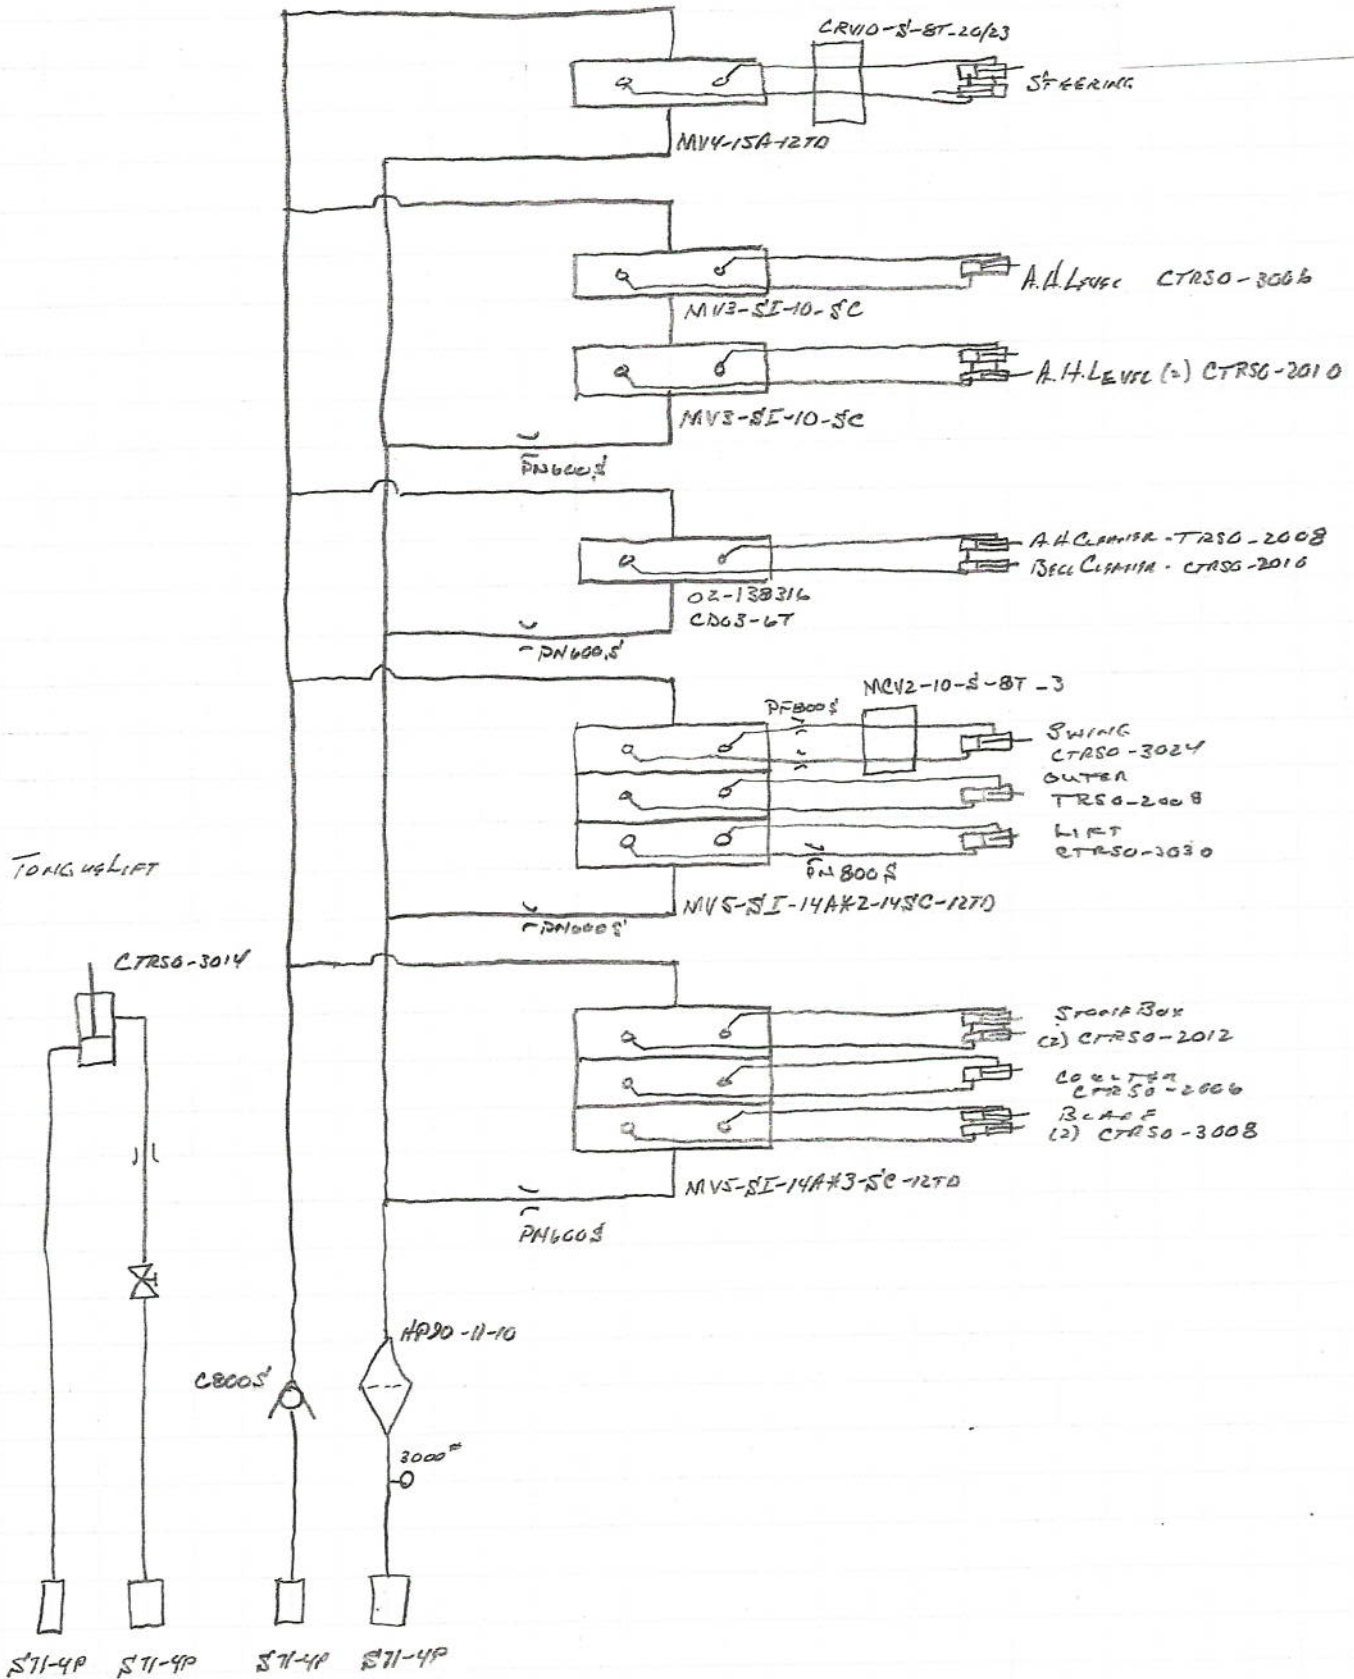 CRV10-S-8T-20/23
STEERING
MV4-15A-12TD
A.H. LEVEL CTRSO-3006
MV3-SI-10-SC
A.H. LEVEL (2) CTRSO-2010
MV3-SI-10-SC
PN600S
A H CLEANER - TRSO-2008
BELL CLEANER - CTRSO-2010
02-138316
CD03-6T
PN600S
MCV2-10-S-8T-3
PF800S
SWING
CTRSO-3024
OUTER
TRSO-2008
LIFT
CTRSO-3030
PN800S
TONGUE LIFT
MV5-SI-14A#2-14SC-12TD
PN600S
CTRSO-3014
STONE BOX
(2) CTRSO-2012
COULTER
CTRSO-2006
BLADE
(2) CTRSO-3008
MV5-SI-14A#3-SC-12TD
PN600S
HP90-11-10
C800S
3000#
S71-4P S71-4P S71-4P S71-4P